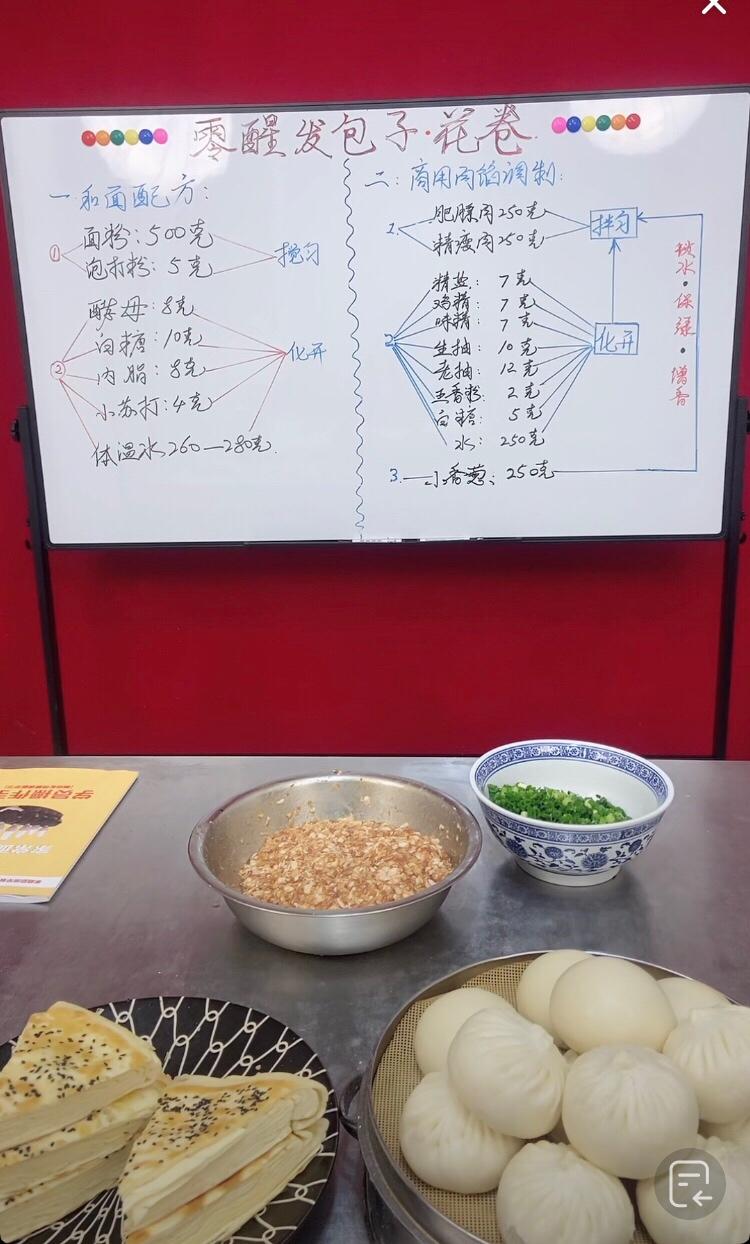 零醒发包子·花卷
一 和面配方:
① 面粉:500克
泡打粉:5克
搅匀
② 酵母:8克
白糖:10克
内脂:8克
小苏打:4克
体温水260—280克.
化开
二:商用肉馅调制:
1. 肥膘肉250克
精瘦肉250克
拌匀
2 精盐:7克
鸡精:7克
味精:7克
生抽:10克
老抽:12克
五香粉:2克
白糖:5克
水:250克
化开
3.小香葱:250克
锁水·保绿·增香